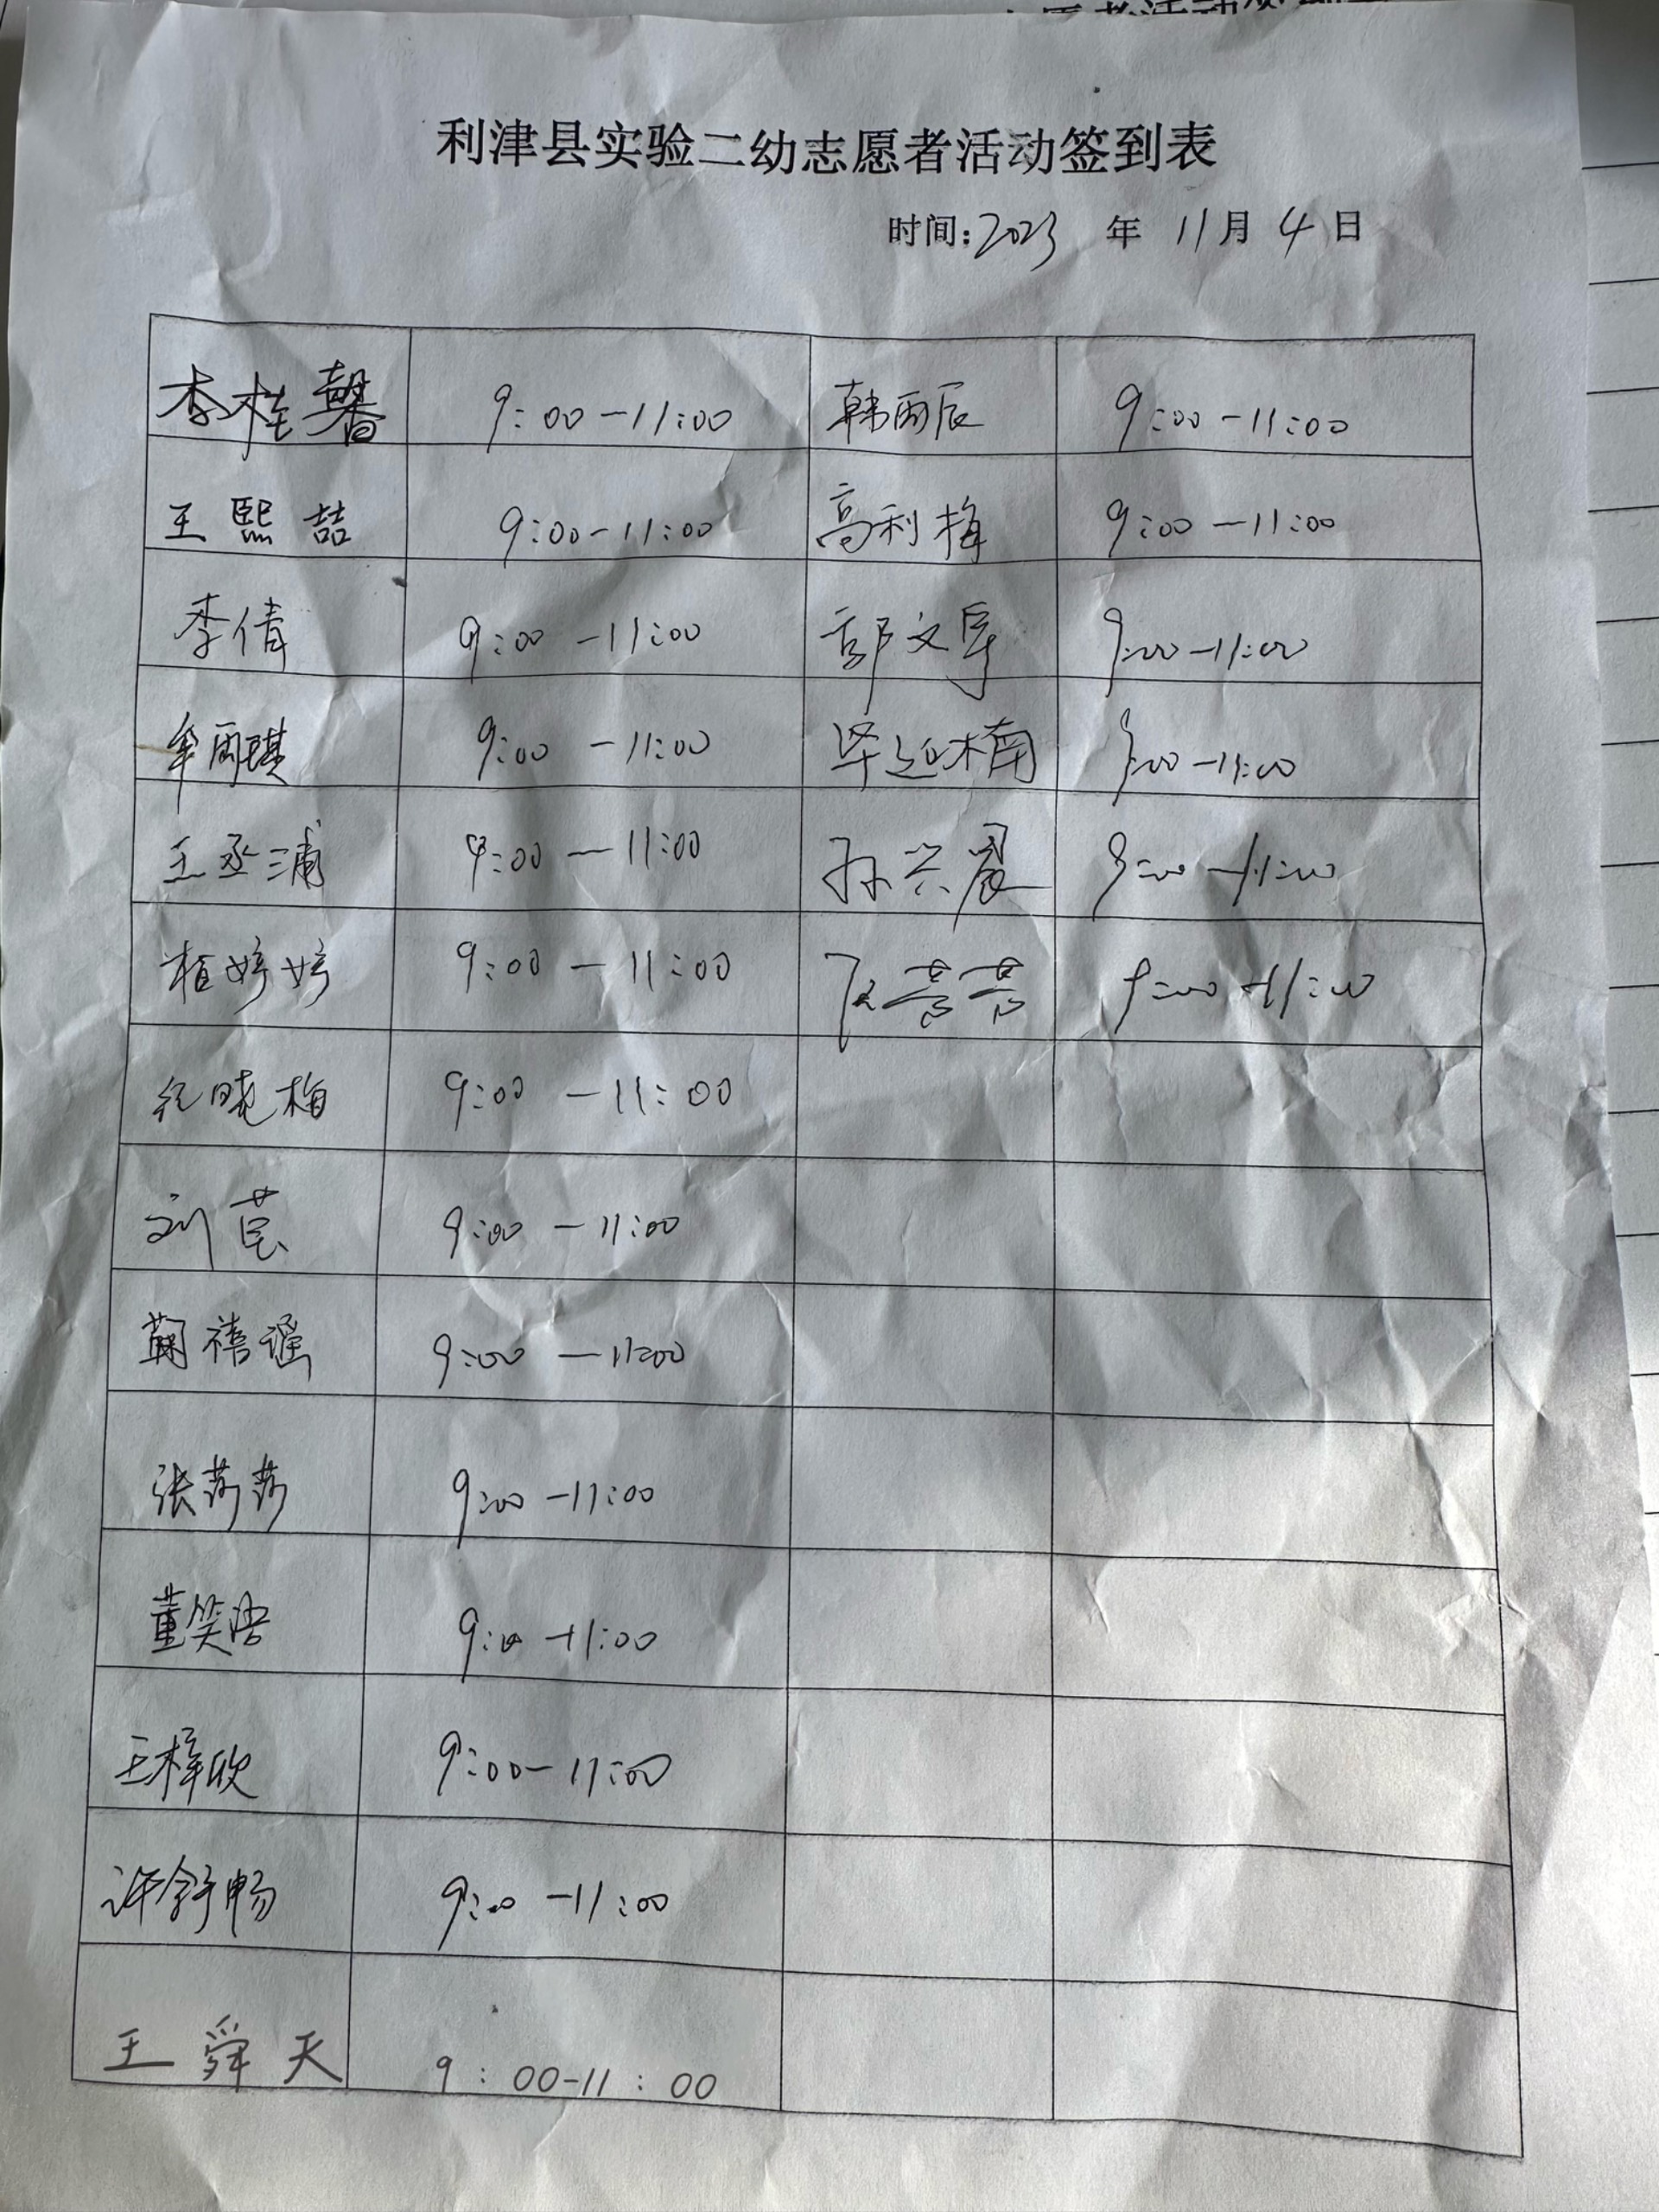 利津县实验二幼志愿者活动签到表
时间:2023 年 11月 4 日
李桂馨 9:00-11:00 韩雨辰 9:00-11:00
王熙喆 9:00-11:00 高利梅 9:00-11:00
李倩 9:00-11:00 郭文军 9:00-11:00
牟雨琪 9:00-11:00 毕延楠 9:00-11:00
王丞浦 9:00-11:00 孙兴晨 9:00-11:00
植婷婷 9:00-11:00 9:00-11:00
纪晓梅 9:00-11:00
刘苠 9:00-11:00
蔺禧谣 9:00-11:00
张莎莎 9:00-11:00
董笑语 9:00-11:00
王梓欣 9:00-11:00
许舒畅 9:00-11:00
王舜天 9:00-11:00